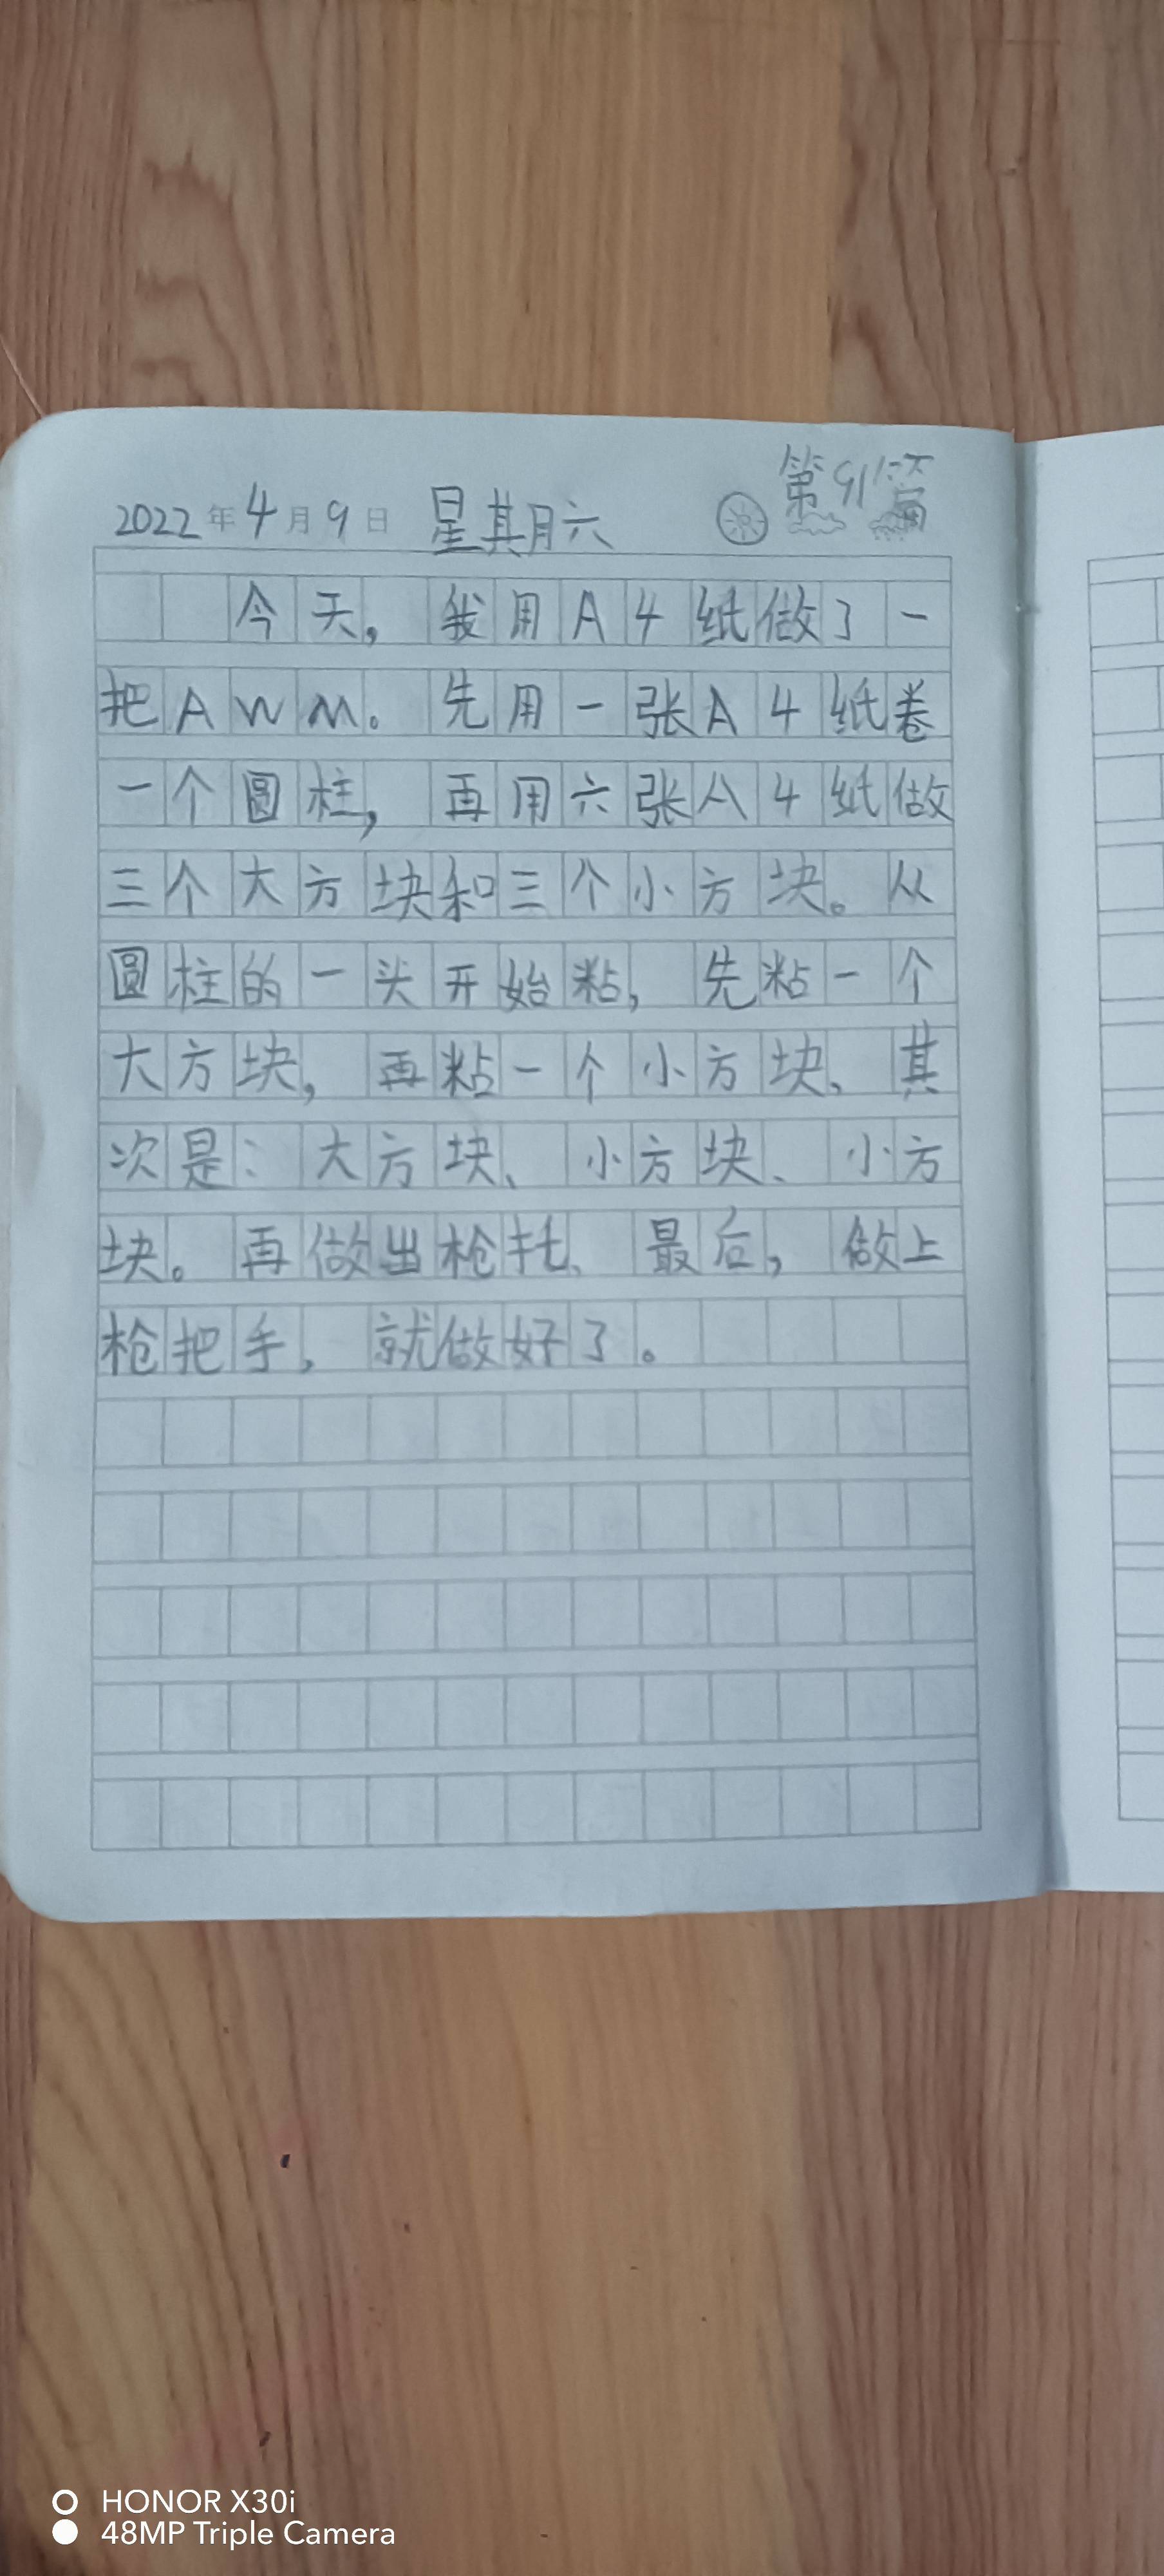 第91篇
2022年4月9日 星期六
今天,我用A4纸做了一
把AWM。先用一张A4纸卷
一个圆柱,再用六张A4纸做
三个大方块和三个小方块。从
圆柱的一头开始粘,先粘一个
大方块,再粘一个小方块、其
次是:大方块、小方块、小方
块。再做出枪托、最后,做上
枪把手,就做好了。
HONOR X30i
48MP Triple Camera